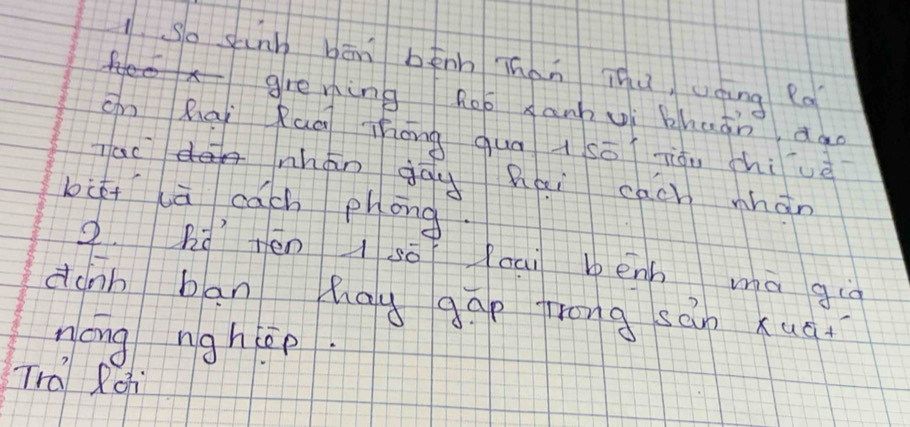 1. So sánh bốn bệnh Thán Thư, vàng lá
greening héo xanh vi khuẩn, đạo
ôn hại lúa Thông qua 1 số Tiêu chí về
Tác nhân gây hại cách nhận
biết và cách phòng.
2. kể tên 1 số loại bệnh mà gia
đình bạn hay gặp Trong sản xuất
nông nghiệp.
Trả lời